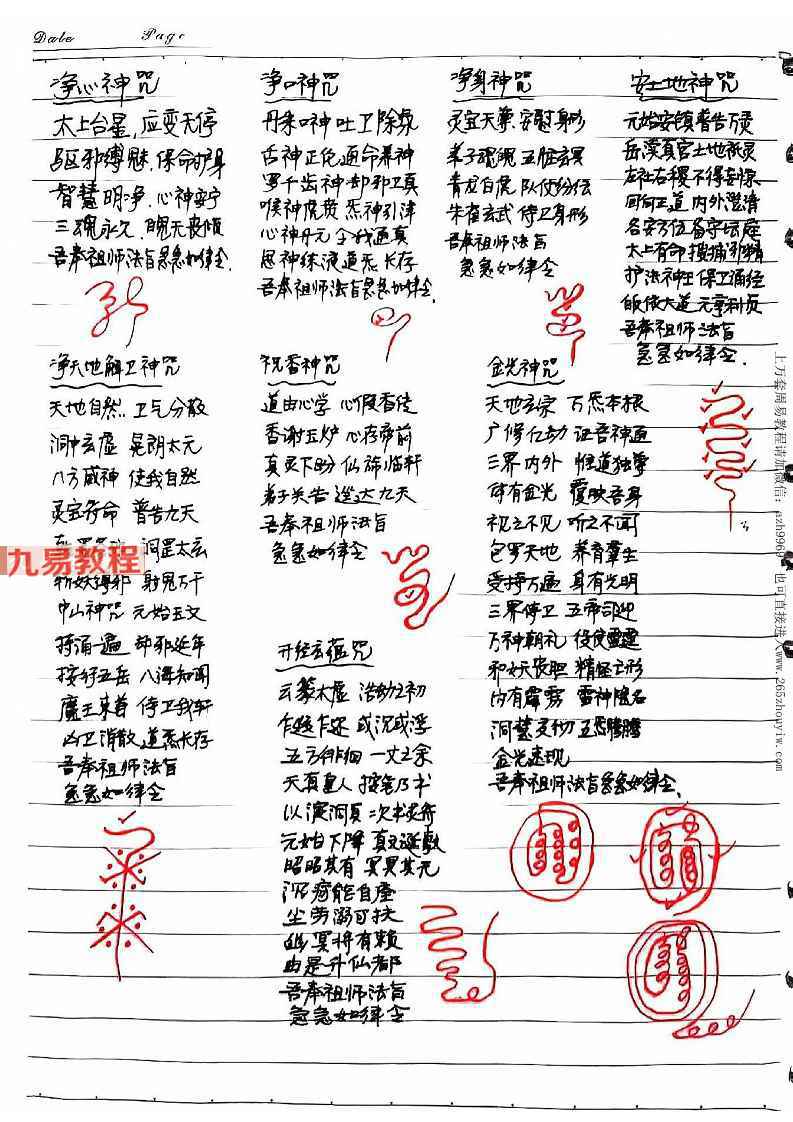 Date Page
净心神咒
太上台星，应变无停
驱邪缚魅．保命护身
智慧明净．心神安宁
三魂永久．魄无丧倾
吾奉祖师法旨急急如律令．
净口神咒
丹朱口神吐卫除氛
舌神正伦通命养神
罗千齿神却邪卫真
喉神虎贲炁神引津
心神丹元令我通真
思神练液道炁长存
吾奉祖师法旨急急如律令．
净身神咒
灵宝天尊．安慰身形
弟子魂魄 五脏玄冥
青龙白虎 队仗纷纭
朱雀玄武 侍卫身形
吾奉祖师法旨
急急如律令
安土地神咒
元始安镇普告万灵
岳渎真官土地祇灵
左社右稷不得妄惊
回向正道 内外澄清
各安方位备守坛庭
太上有命搜捕邪精
护法神王 保卫诵经
皈依大道 元亨利贞
吾奉祖师法旨
急急如律令．
净天地解卫神咒
天地自然．卫气分散
洞中玄虚 晃朗太元
八方威神 使我自然
灵宝符命 普告九天
洞罡太玄
斩妖缚邪 射鬼万千
中山神咒 元始玉文
持诵一遍 却邪延年
按行五岳 八海知闻
魔王束首 侍卫我轩
凶卫消散 道炁长存
吾奉祖师法旨
急急如律令
祝香神咒
道由心学 心假香传
香谢玉炉 心存帝前
真灵下盼 仙旆临轩
弟子关告 迳达九天
吾奉祖师法旨
急急如律令
开经玄蕴咒
云篆太虚 浩劫之初
乍遐乍迩 或沉或浮
五方徘徊 一丈之余
天真皇人 按笔乃书
以演洞真 次书灵符
元始下降 真文诞敷
昭昭其有 冥冥其元
沉疴能自痊
尘劳溺可扶
幽冥将有赖
由是升仙都
吾奉祖师法旨
急急如律令
金光神咒
天地玄宗 万炁本根
广修亿劫 证吾神通
三界内外 惟道独尊
体有金光 覆映吾身
视之不见 听之不闻
包罗天地 养育群生
受持万遍 身有光明
三界侍卫 五帝司迎
万神朝礼 役使雷霆
和妖丧胆 精怪亡形
内有霹雳 雷神隐名
洞慧灵彻 五炁腾腾
金光速现
吾奉祖师法旨急急如律令．
九易教程
上万套周易教程请加微信：azh9969 也可直接进入www.265zhouyiw.com